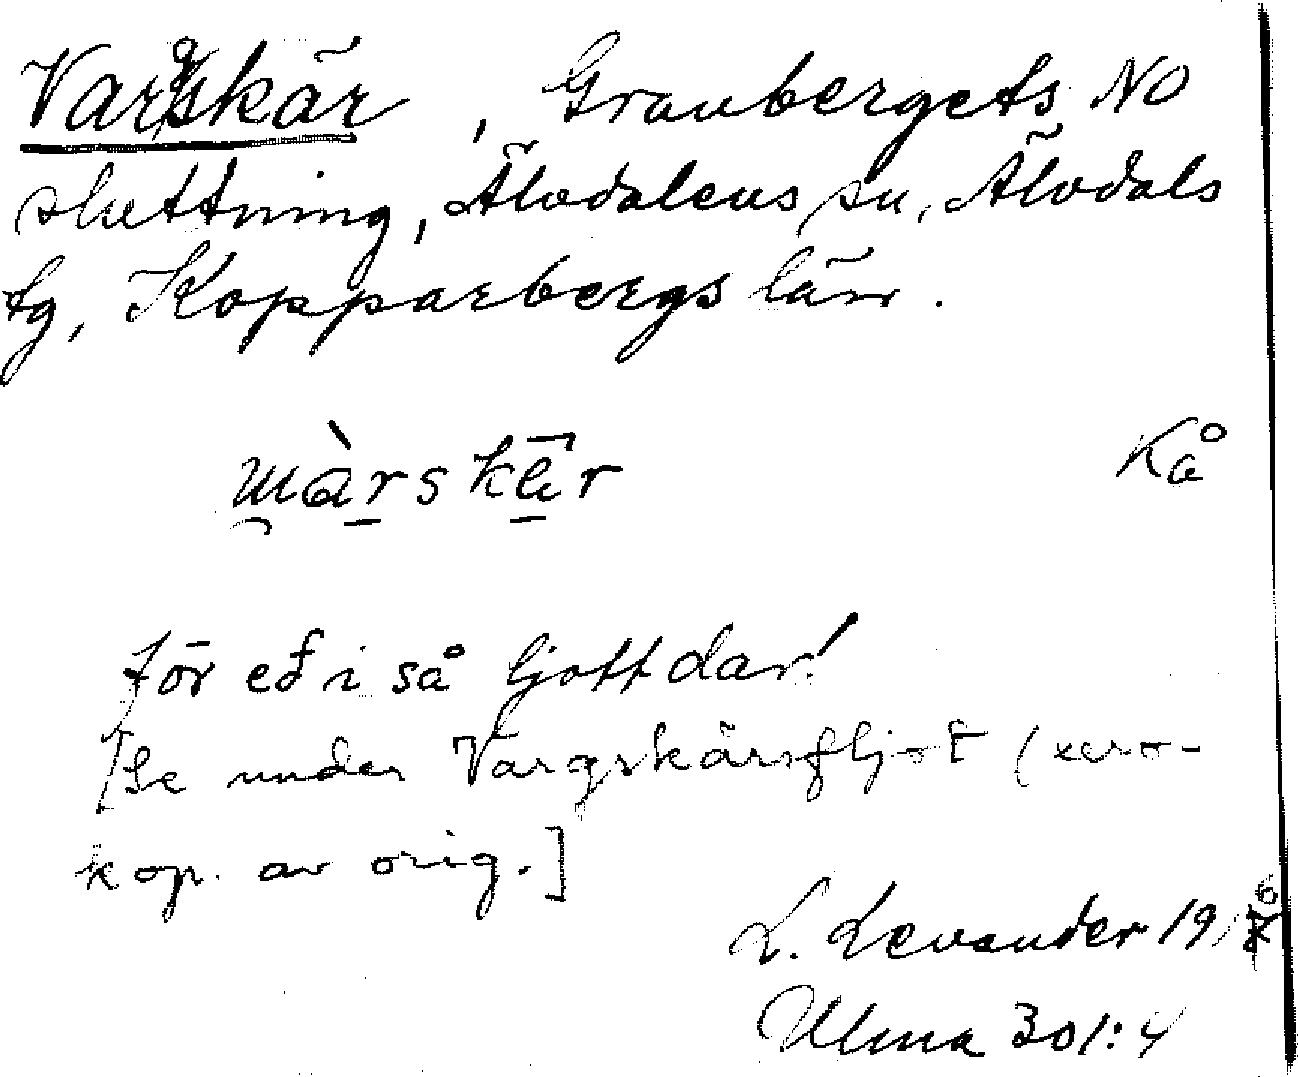 Vargskär, Granbergets NO
sluttning, Älvdalens sn, Älvdals
tg, Kopparbergs län.
wàrskär Kå
för eð i så ljott dar!
[Se under Vargskärsfljot (xero-
kop. av orig.]
L. Levander 19
Ulma 301:4